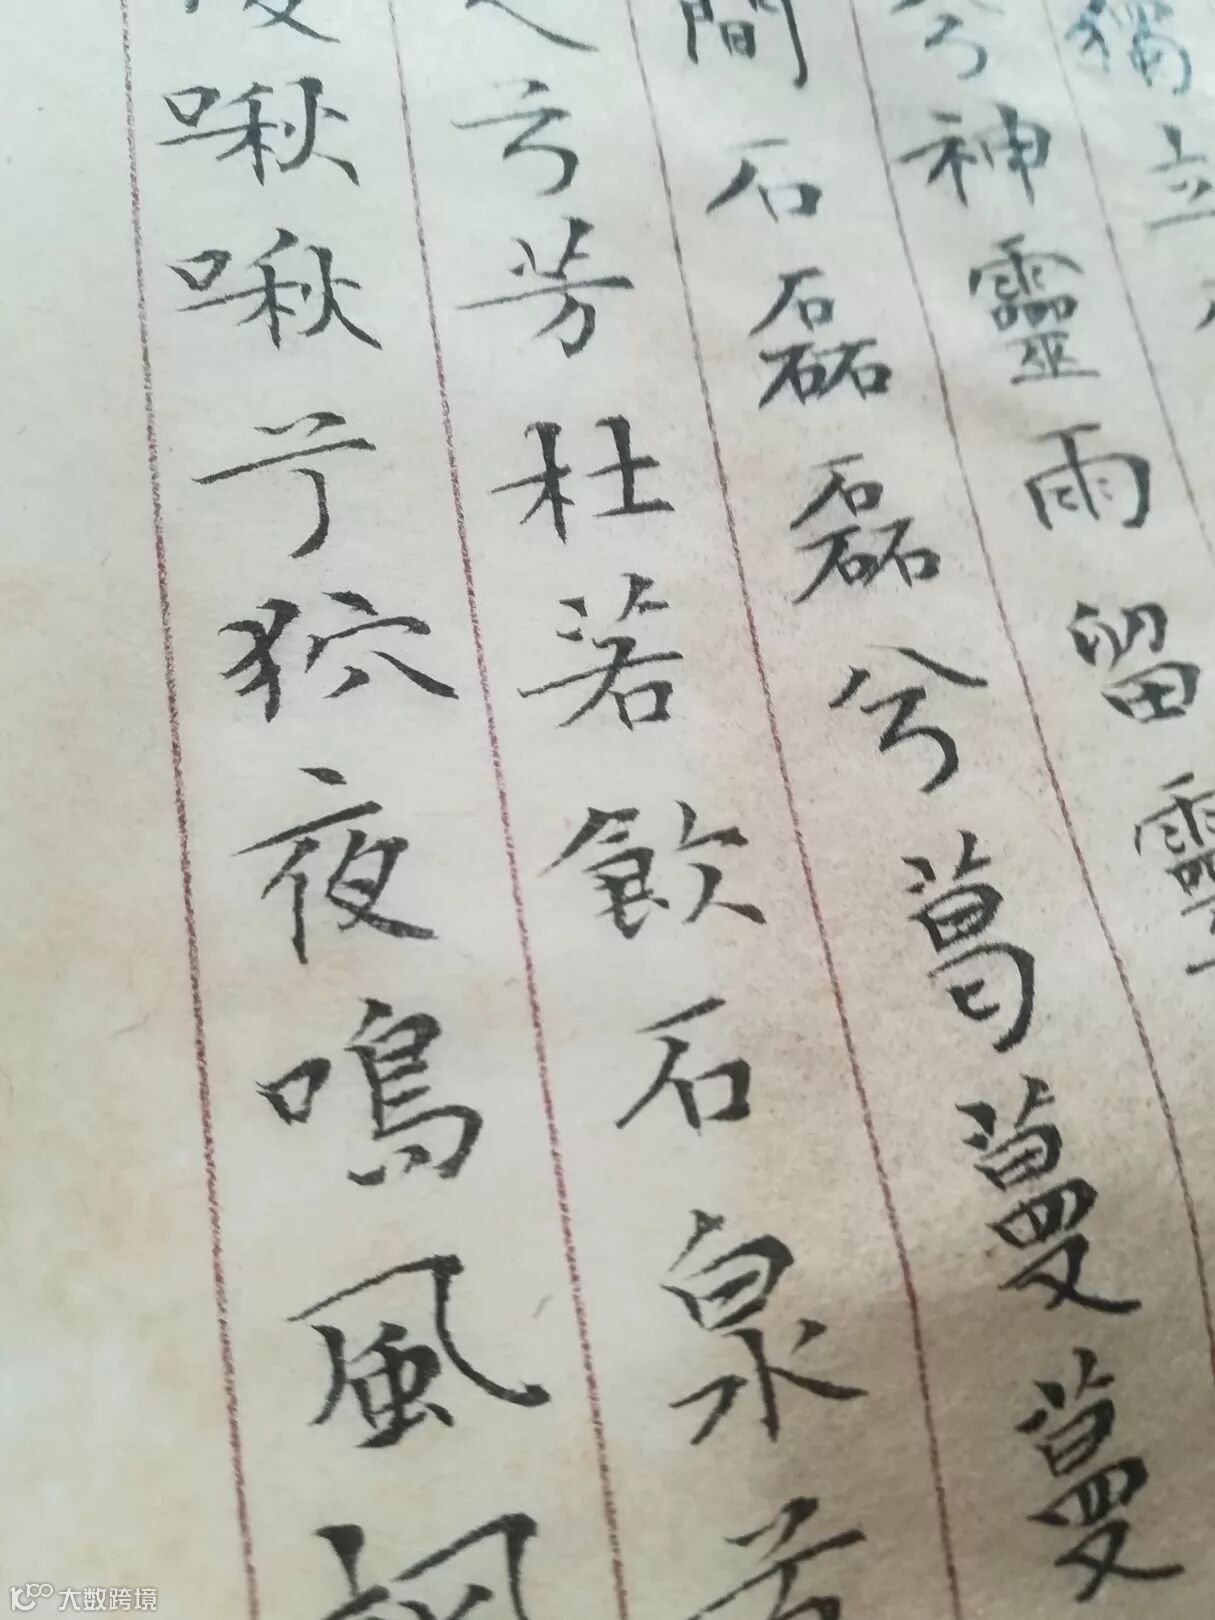 獨立
兮神靈雨留靈
間石磊磊兮葛蔓蔓
人兮芳杜若飲石泉兮
啾啾兮狖夜鳴風颯
大数跨境